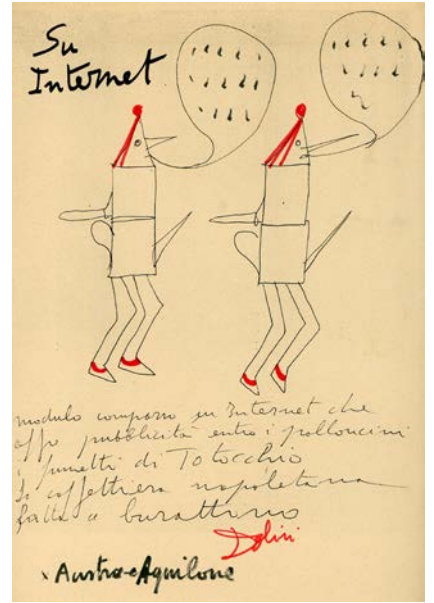 Su
Internet
modulo comparso su Internet che
offro pubblicità entro i palloncini
i fumetti di Totocchio
la caffettiera napoletana
fatta a burattino
Dalisi
x Austro e Aquilone